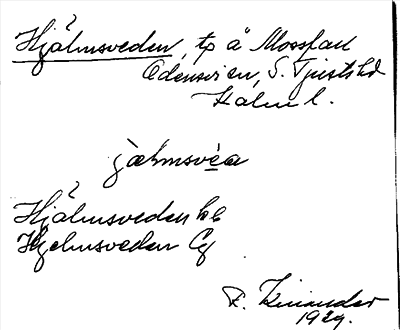 Hjälmsveden, tp å Mossfall
Odensvi sn, S. Tjusts hd
Kalm l.
jælmsvéa
Hjälmsveden bb
Hjelmsveden Cg
1929.